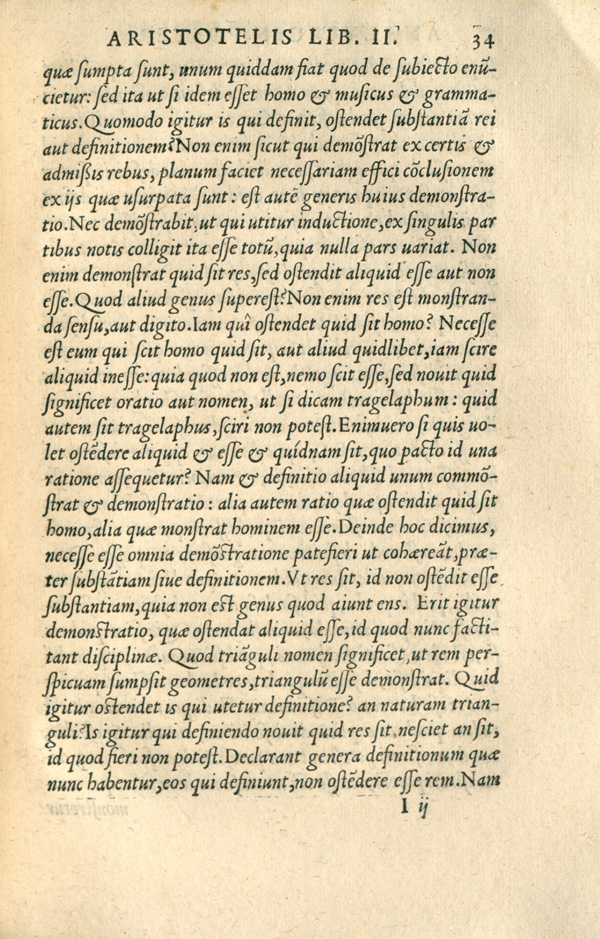 ARISTOTELIS LIB. II. 34
quæ sumpta sunt, unum quiddam fiat quod de subiecto enũ-
cietur: sed ita ut si idem esset homo & musicus & gramma-
ticus. Quomodo igitur is qui definit, ostendet substantiã rei
aut definitionem? Non enim sicut qui demõstrat ex certis &
admißis rebus, planum faciet necessariam effici cõclusionem
ex ijs quæ usurpata sunt: est autẽ generis huius demonstra-
tio. Nec demõstrabit, ut qui utitur inductione, ex singulis par
tibus notis colligit ita esse totũ, quia nulla pars uariat. Non
enim demonstrat quid sit res, sed ostendit aliquid esse aut non
esse. Quod aliud genus superest? Non enim res est monstran-
da sensu, aut digito. Iam quî ostendet quid sit homo? Necesse
est eum qui scit homo quid sit, aut aliud quidlibet, iam scire
aliquid inesse: quia quod non est, nemo scit esse, sed nouit quid
significet oratio aut nomen, ut si dicam tragelaphum: quid
autem sit tragelaphus, sciri non potest. Enimuero si quis uo-
let ostẽdere aliquid & esse & quídnam sit, quo pacto id una
ratione assequetur? Nam & definitio aliquid unum commõ-
strat & demonstratio: alia autem ratio quæ ostendit quid sit
homo, alia quæ monstrat hominem esse. Deinde hoc dicimus,
necesse esse omnia demõstratione patefieri ut cohæreãt, præ-
ter substãtiam siue definitionem. Vt res sit, id non ostẽdit esse
substantiam, quia non est genus quod aiunt ens. Erit igitur
demonstratio, quæ ostendat aliquid esse, id quod nunc facti-
tant disciplinæ. Quod triãguli nomen significet, ut rem per-
spicuam sumpsit geometres, triangulũ esse demonstrat. Quid
igitur ostendet is qui utetur definitione? an naturam trian-
guli? Is igitur qui definiendo nouit quid res sit, nesciet an sit,
id quod fieri non potest. Declarant genera definitionum quæ
nunc habentur, eos qui definiunt, non ostẽdere esse rem. Nam
I ij